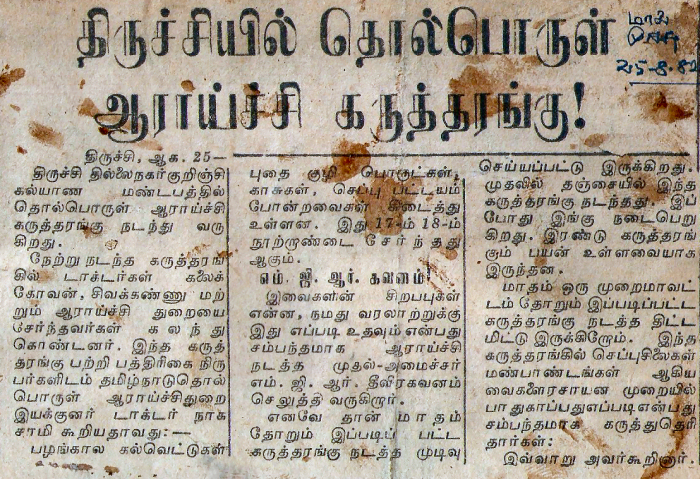 திருச்சியில் தொல்பொருள்
ஆராய்ச்சி கருத்தரங்கு!
மாலை
25-8-82
திருச்சி, ஆக. 25—
திருச்சி தில்லைநகர்குறிஞ்சி
கல்யாண மண்டபத்தில்
தொல்பொருள் ஆராய்ச்சி
கருத்தரங்கு நடந்து வரு
கிறது.
நேற்று நடந்த கருத்தரங்
கில் டாக்டர்கள் கலைக்
கோவன், சிவக்கண்ணு மற்
றும் ஆராய்ச்சி துறையை
சேர்ந்தவர்கள் கலந்து
கொண்டனர். இந்த கருத்
தரங்கு பற்றி பத்திரிகை நிரு
பர்களிடம் தமிழ்நாடுதொல்
பொருள் ஆராய்ச்சிதுறை
இயக்குனர் டாக்டர் நாக
சாமி கூறியதாவது:—
பழங்கால கல்வெட்டுகள்
புதை குழி பொருட்கள்,
காசுகள், செப்பு பட்டயம்
போன்றவைகள் கிடைத்து
உள்ளன. இது 17-ம் 18-ம்
நூற்றாண்டை சேர்ந்தது
ஆகும்.
எம். ஜி. ஆர். கவனம்!
இவைகளின் சிறபபுகள்
என்ன, நமது வரலாற்றுக்கு
இது எப்படி உதவும் என்பது
சம்பந்தமாக ஆராய்ச்சி
நடத்த முதல்-அமைச்சர்
எம். ஜி. ஆர். தீவிரகவனம்
செலுத்தி வருகிறார்.
எனவே தான் மாதம்
தோறும் இப்படிப் பட்ட
கருத்தரங்கு நடத்த முடிவு
செய்யப்பட்டு இருக்கிறது.
முதலில் தஞ்சையில் இந்த
கருத்தரங்கு நடந்தது. இப்
போது இங்கு நடைபெறு
கிறது. இரண்டு கருத்தரங்
கும் பயன் உள்ளவையாக
இருந்தன.
மாதம் ஒரு முறைமாவட்
டம் தோறும் இப்படிப்பட்ட
கருத்தரங்கு நடத்த திட்ட
மிட்டு இருக்கிறோம். இந்த
கருத்தரங்கில் செப்புசிலைகள்
மண்பாண்டங்கள் ஆகிய
வைகளைரசாயன முறையில்
பாதுகாப்பதுஎப்படிஎன்பது
சம்பந்தமாக கருத்துதெரி
தார்கள்:
இவ்வாறு அவர்கூறினார்.